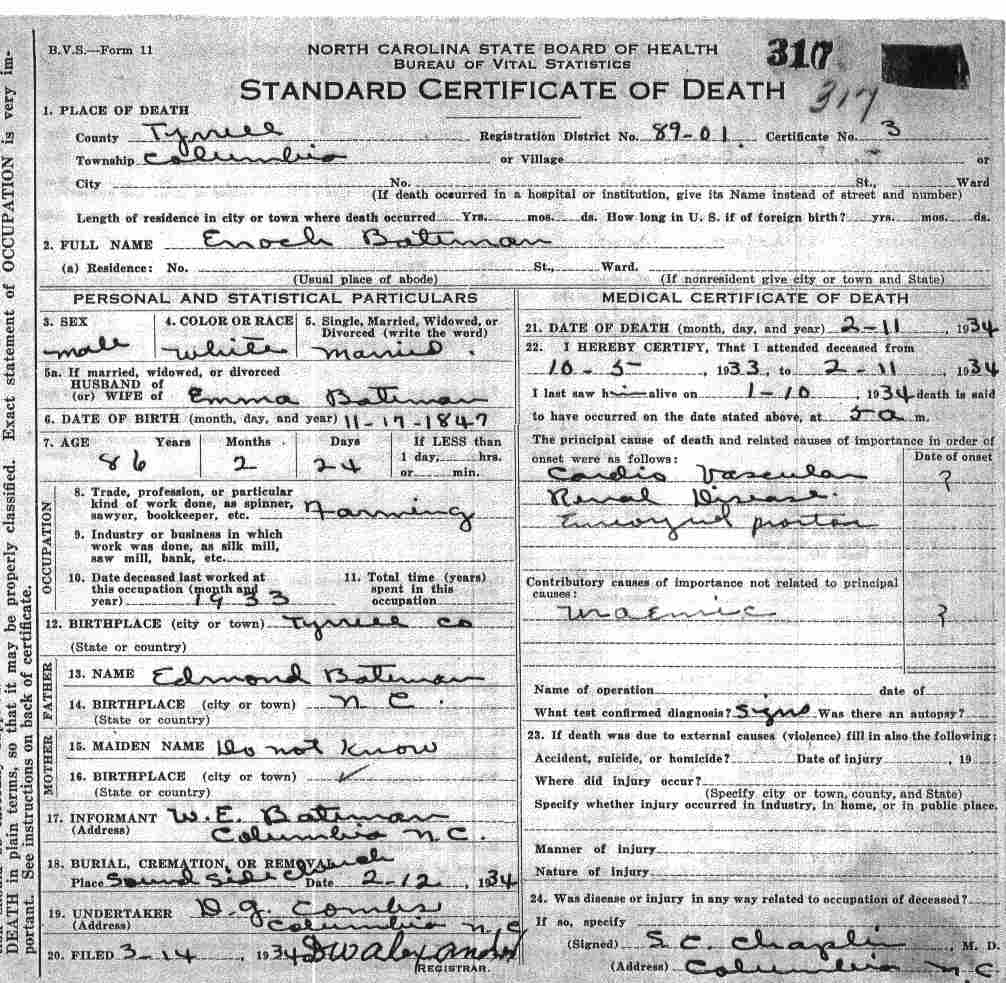 B.V.S.—Form 11
NORTH CAROLINA STATE BOARD OF HEALTH
BUREAU OF VITAL STATISTICS
317
317
STANDARD CERTIFICATE OF DEATH
1. PLACE OF DEATH
County Tyrrell Registration District No. 89-01 Certificate No. 3
Township Columbia or Village or
City No. St., Ward
(If death occurred in a hospital or institution, give its Name instead of street and number)
Length of residence in city or town where death occurred Yrs. mos. ds. How long in U. S. if of foreign birth? yrs. mos. ds.
2. FULL NAME Enoch Bateman
(a) Residence: No. St., Ward.
(Usual place of abode) (If nonresident give city or town and State)
PERSONAL AND STATISTICAL PARTICULARS
3. SEX 4. COLOR OR RACE 5. Single, Married, Widowed, or
Divorced (write the word)
male white married.
5a. If married, widowed, or divorced
HUSBAND of
(or) WIFE of Emma Bateman
6. DATE OF BIRTH (month, day, and year) 11-17-1847
7. AGE Years Months Days If LESS than
1 day, hrs.
or min.
86 2 24
OCCUPATION
8. Trade, profession, or particular
kind of work done, as spinner,
sawyer, bookkeeper, etc. Farming
9. Industry or business in which
work was done, as silk mill,
saw mill, bank, etc.
10. Date deceased last worked at
this occupation (month and
year) 1933
11. Total time (years)
spent in this
occupation
12. BIRTHPLACE (city or town) Tyrrell Co
(State or country)
FATHER
13. NAME Edmond Bateman
14. BIRTHPLACE (city or town) N C.
(State or country)
MOTHER
15. MAIDEN NAME Do not Know
16. BIRTHPLACE (city or town) ✓
(State or country)
17. INFORMANT W. E. Bateman
(Address) Columbia N.C.
18. BURIAL, CREMATION, OR REMOVAL
Place Sound Side Church Date 2-12, 1934
19. UNDERTAKER D. G. Combs
(Address) Columbia N.C
20. FILED 3-14, 1934 Alexander
REGISTRAR.
MEDICAL CERTIFICATE OF DEATH
21. DATE OF DEATH (month, day, and year) 2-11, 1934
22. I HEREBY CERTIFY, That I attended deceased from
10-5, 1933, to 2-11, 1934
I last saw him alive on 1-10, 1934 death is said
to have occurred on the date stated above, at 5 a m.
The principal cause of death and related causes of importance in order of
onset were as follows: Date of onset
Cardio Vascular ?
Renal Disease.
Contributory causes of importance not related to principal
causes:
Uraemic ?
Name of operation date of
What test confirmed diagnosis? Signs Was there an autopsy?
23. If death was due to external causes (violence) fill in also the following:
Accident, suicide, or homicide? Date of injury, 19
Where did injury occur?
(Specify city or town, county, and State)
Specify whether injury occurred in industry, in home, or in public place.
Manner of injury
Nature of injury
24. Was disease or injury in any way related to occupation of deceased?
If so, specify
(Signed) S. C. Chaplin, M. D.
(Address) Columbia N. C
DEATH in plain terms, so that it may be properly classified. Exact statement of OCCUPATION is very im-
portant. See instructions on back of certificate.